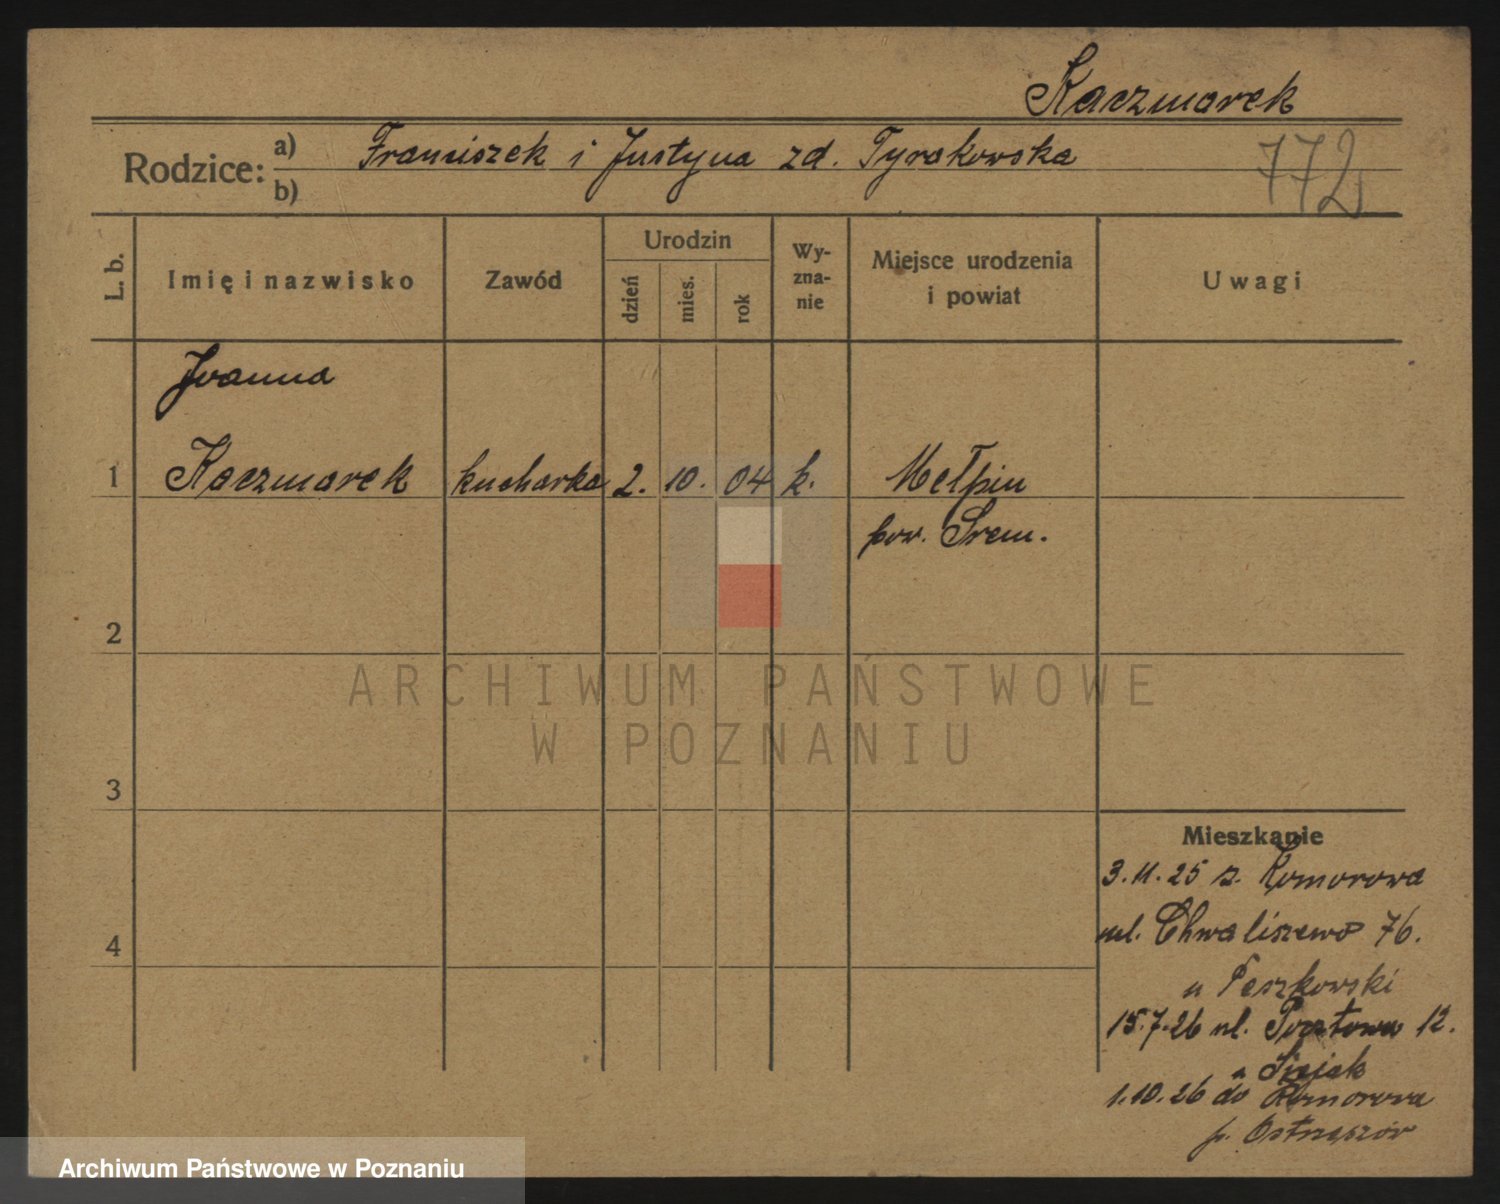 Kaczmarek
Rodzice: a) Franciszek i Justyna zd. Tyrakowska
b)
772
L. b.
Imię i nazwisko
Zawód
Urodzin
dzień
mies.
rok
Wy-
zna-
nie
Miejsce urodzenia
i powiat
Uwagi
Joanna
1 Kaczmarek kucharka 2. 10. 04 k. Mełpin
pow. Śrem.
2
ARCHIWUM PAŃSTWOWE
W POZNANIU
3
Mieszkanie
3.11.25 z. Komorowa
ul. Chwaliszewo 76.
4
u Peszkowski
15.7.26 ul. Pocztowa 12.
u
1.10.26 do Komorowa
p. Ostrzeszów
Archiwum Państwowe w Poznaniu